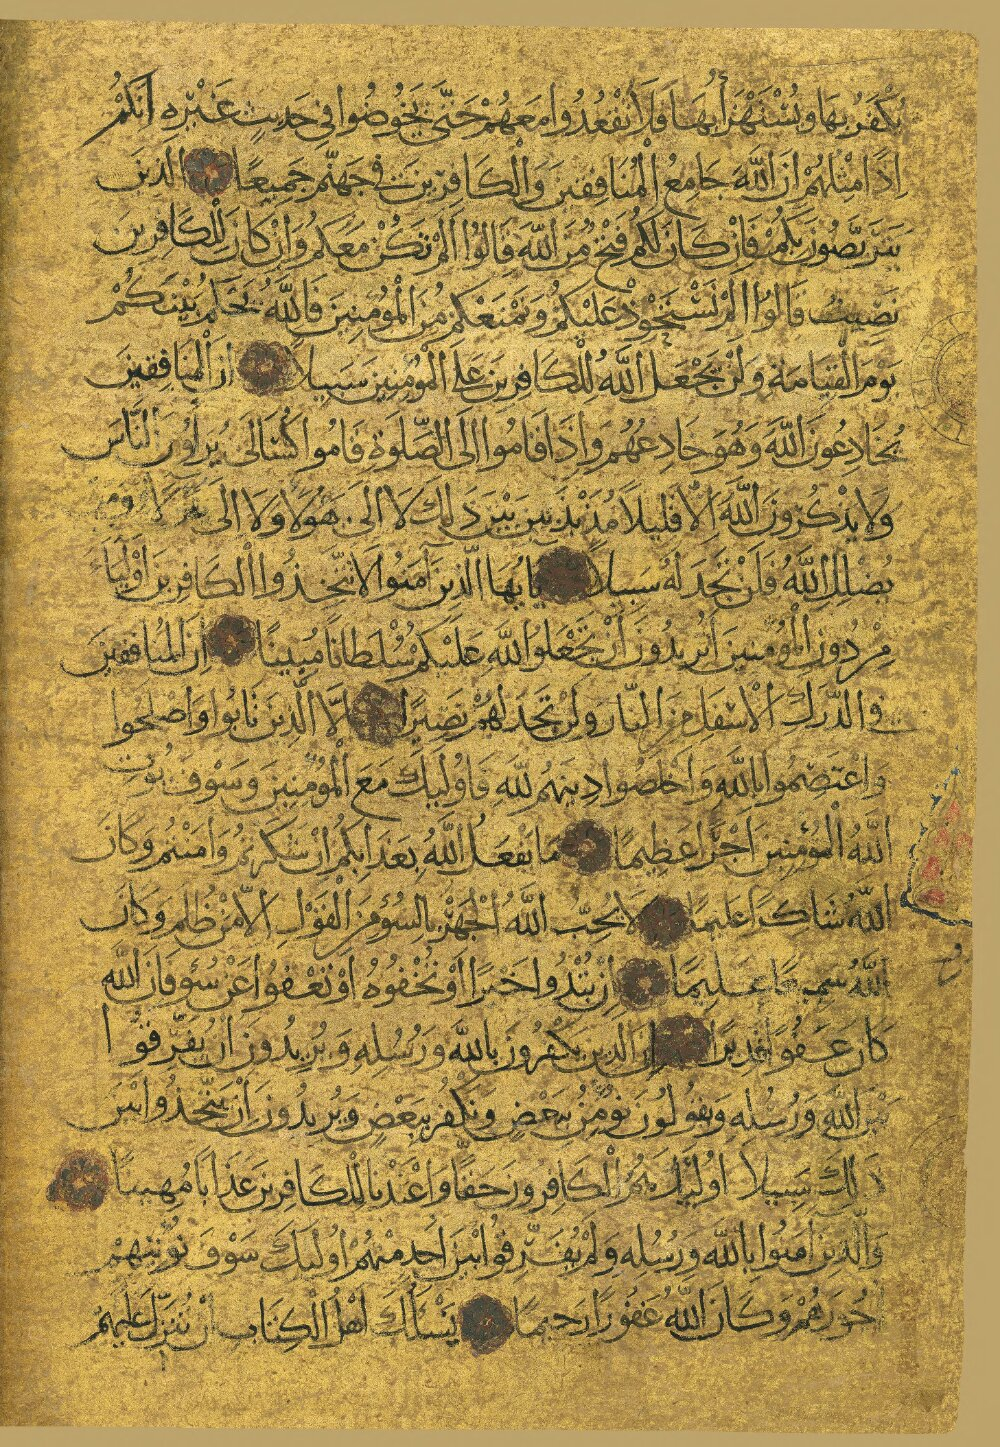 يُكْفَرُ بِهَا وَيُسْتَهْزَأُ بِهَا فَلَا تَقْعُدُوا مَعَهُمْ حَتَّى يَخُوضُوا فِي حَدِيثٍ غَيْرِهِ إِنَّكُمْ
إِذًا مِثْلُهُمْ إِنَّ اللَّهَ جَامِعُ الْمُنَافِقِينَ وَالْكَافِرِينَ فِي جَهَنَّمَ جَمِيعًا الَّذِينَ
يَتَرَبَّصُونَ بِكُمْ فَإِنْ كَانَ لَكُمْ فَتْحٌ مِنَ اللَّهِ قَالُوا أَلَمْ نَكُنْ مَعَكُمْ وَإِنْ كَانَ لِلْكَافِرِينَ
نَصِيبٌ قَالُوا أَلَمْ نَسْتَحْوِذْ عَلَيْكُمْ وَنَمْنَعْكُمْ مِنَ الْمُؤْمِنِينَ فَاللَّهُ يَحْكُمُ بَيْنَكُمْ
يَوْمَ الْقِيَامَةِ وَلَنْ يَجْعَلَ اللَّهُ لِلْكَافِرِينَ عَلَى الْمُؤْمِنِينَ سَبِيلًا إِنَّ الْمُنَافِقِينَ
يُخَادِعُونَ اللَّهَ وَهُوَ خَادِعُهُمْ وَإِذَا قَامُوا إِلَى الصَّلَوةِ قَامُوا كُسَالَى يُرَاؤُنَ النَّاسَ
وَلَا يَذْكُرُونَ اللَّهَ إِلَّا قَلِيلًا مُذَبْذَبِينَ بَيْنَ ذَلِكَ لَا إِلَى هَؤُلَاءِ وَلَا إِلَى هَؤُلَاءِ وَمَنْ
يُضْلِلِ اللَّهُ فَلَنْ تَجِدَ لَهُ سَبِيلًا يَا أَيُّهَا الَّذِينَ آمَنُوا لَا تَتَّخِذُوا الْكَافِرِينَ أَوْلِيَاءَ
مِنْ دُونِ الْمُؤْمِنِينَ أَتُرِيدُونَ أَنْ تَجْعَلُوا لِلَّهِ عَلَيْكُمْ سُلْطَانًا مُبِينًا إِنَّ الْمُنَافِقِينَ
فِي الدَّرْكِ الْأَسْفَلِ مِنَ النَّارِ وَلَنْ تَجِدَ لَهُمْ نَصِيرًا إِلَّا الَّذِينَ تَابُوا وَأَصْلَحُوا
وَاعْتَصَمُوا بِاللَّهِ وَأَخْلَصُوا دِينَهُمْ لِلَّهِ فَأُولَئِكَ مَعَ الْمُؤْمِنِينَ وَسَوْفَ يُؤْتِ
اللَّهُ الْمُؤْمِنِينَ أَجْرًا عَظِيمًا مَا يَفْعَلُ اللَّهُ بِعَذَابِكُمْ إِنْ شَكَرْتُمْ وَآمَنْتُمْ وَكَانَ
اللَّهُ شَاكِرًا عَلِيمًا لَا يُحِبُّ اللَّهُ الْجَهْرَ بِالسُّوءِ مِنَ الْقَوْلِ إِلَّا مَنْ ظُلِمَ وَكَانَ
اللَّهُ سَمِيعًا عَلِيمًا إِنْ تُبْدُوا خَيْرًا أَوْ تُخْفُوهُ أَوْ تَعْفُوا عَنْ سُوءٍ فَإِنَّ اللَّهَ
كَانَ عَفُوًّا قَدِيرًا إِنَّ الَّذِينَ يَكْفُرُونَ بِاللَّهِ وَرُسُلِهِ وَيُرِيدُونَ أَنْ يُفَرِّقُوا
بَيْنَ اللَّهِ وَرُسُلِهِ وَيَقُولُونَ نُؤْمِنُ بِبَعْضٍ وَنَكْفُرُ بِبَعْضٍ وَيُرِيدُونَ أَنْ يَتَّخِذُوا بَيْنَ
ذَلِكَ سَبِيلًا أُولَئِكَ هُمُ الْكَافِرُونَ حَقًّا وَأَعْتَدْنَا لِلْكَافِرِينَ عَذَابًا مُهِينًا
وَالَّذِينَ آمَنُوا بِاللَّهِ وَرُسُلِهِ وَلَمْ يُفَرِّقُوا بَيْنَ أَحَدٍ مِنْهُمْ أُولَئِكَ سَوْفَ نُؤْتِيهِمْ
أُجُورَهُمْ وَكَانَ اللَّهُ غَفُورًا رَحِيمًا يَسْأَلُكَ أَهْلُ الْكِتَابِ أَنْ تُنَزِّلَ عَلَيْهِمْ